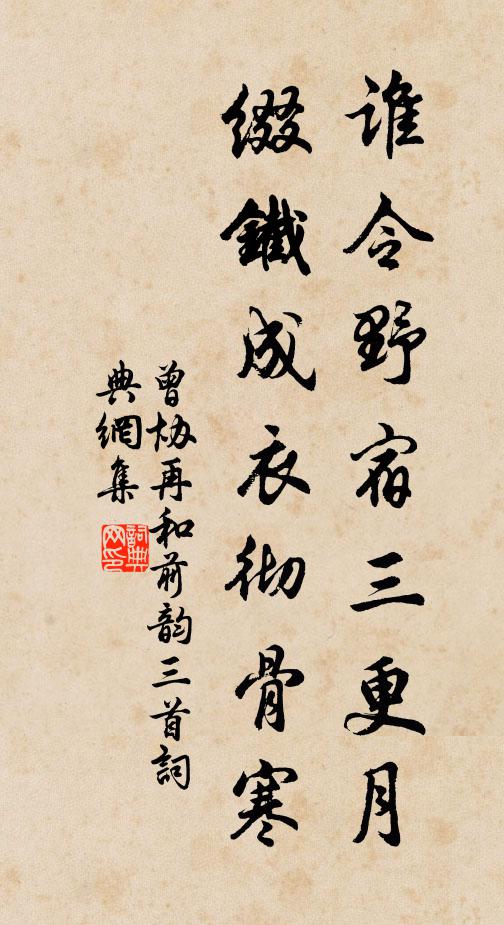 誰令野宿三更月
綴鐵成衣彻骨寒
曾協再和前韵三首詞
典網集
詞典
网印